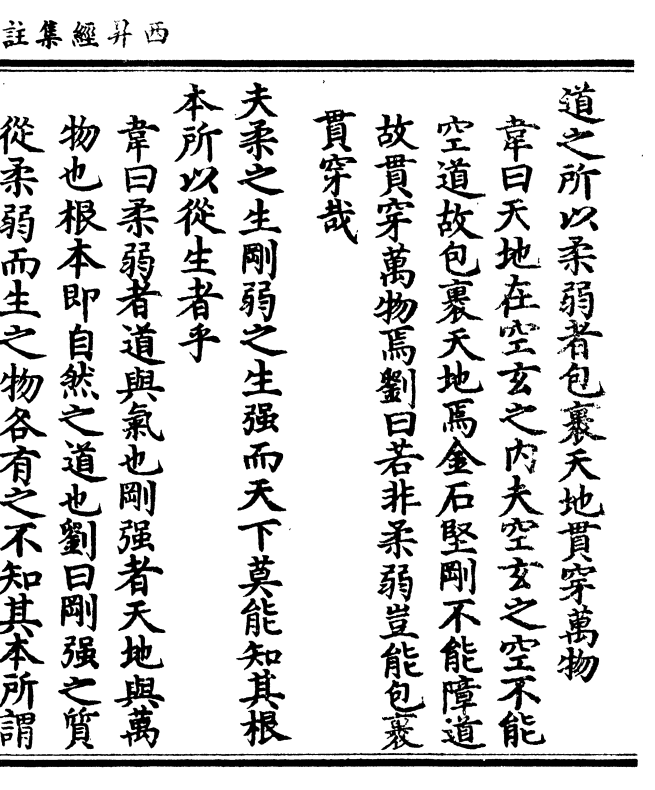 西昇經集註
道之所以柔弱者包裹天地貫穿萬物
韋曰天地在空玄之内夫空玄之空不能
空道故包裹天地焉金石堅剛不能障道
故貫穿萬物焉劉曰若非柔弱豈能包裹
貫穿哉
夫柔之生剛弱之生强而天下莫能知其根
本所以從生者乎
韋曰柔弱者道與氣也剛强者天地與萬
物也根本即自然之道也劉曰剛强之質
從柔弱而生之物各有之不知其本所謂